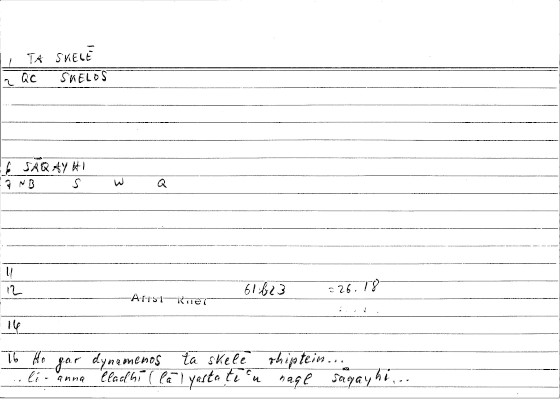 1 TA SKELĒ
2 QC SKELOS
6 SĀQAYHI
7 NB S W Q
11
12 Arist Rhet 61b23 =26.18
14
16 Ho gar dynamenos ta skelē rhiptein...
..li-anna lladhī (lā) yastatīʿu naql sāqayhi...